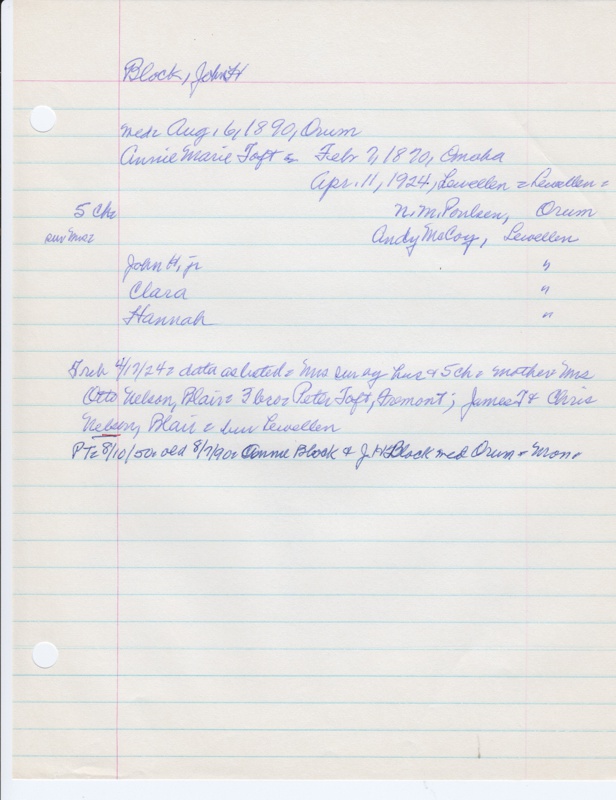 Block, John H
med= Aug. 6, 1890, Orum
Annie Marie Taft = Feb 7, 1870, Omaha
Apr. 11, 1924, Lewellen = Lewellen =
5 ch= N. M. Poulsen, Orum
sur Mrs= Andy McCoy, Lewellen
John H, jr "
Clara "
Hannah "
Trib 4/17/24= data as listed= Mrs sur by hus & 5 ch= mother= Mrs
Otto Nelson, Blair= 3 bro= Peter Taft, Fremont; James T & Chris
Nelson, Blair = bur Lewellen
PT= 8/10/50= old 8/7/90= Annie Block & J H Block med Orum = Mon=